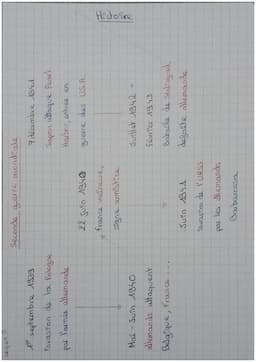 Histoire
Seconde guerre mondiale
1er septembre 1939
Invasion de la Pologne
par l'armée allemande
Mai - Juin 1940
Allemands attaquent
Belgique, France ...
22 Juin 1940
France vaincue,
signe armistice
Juin 1941
Invasion de l'URSS
par les allemands
Barbarossa
7 décembre 1941
Japon attaque Pearl
Harbor, entrée en
guerre des USA
Juillet 1942 -
Février 1943
Bataille de Stalingrad
défaite allemande